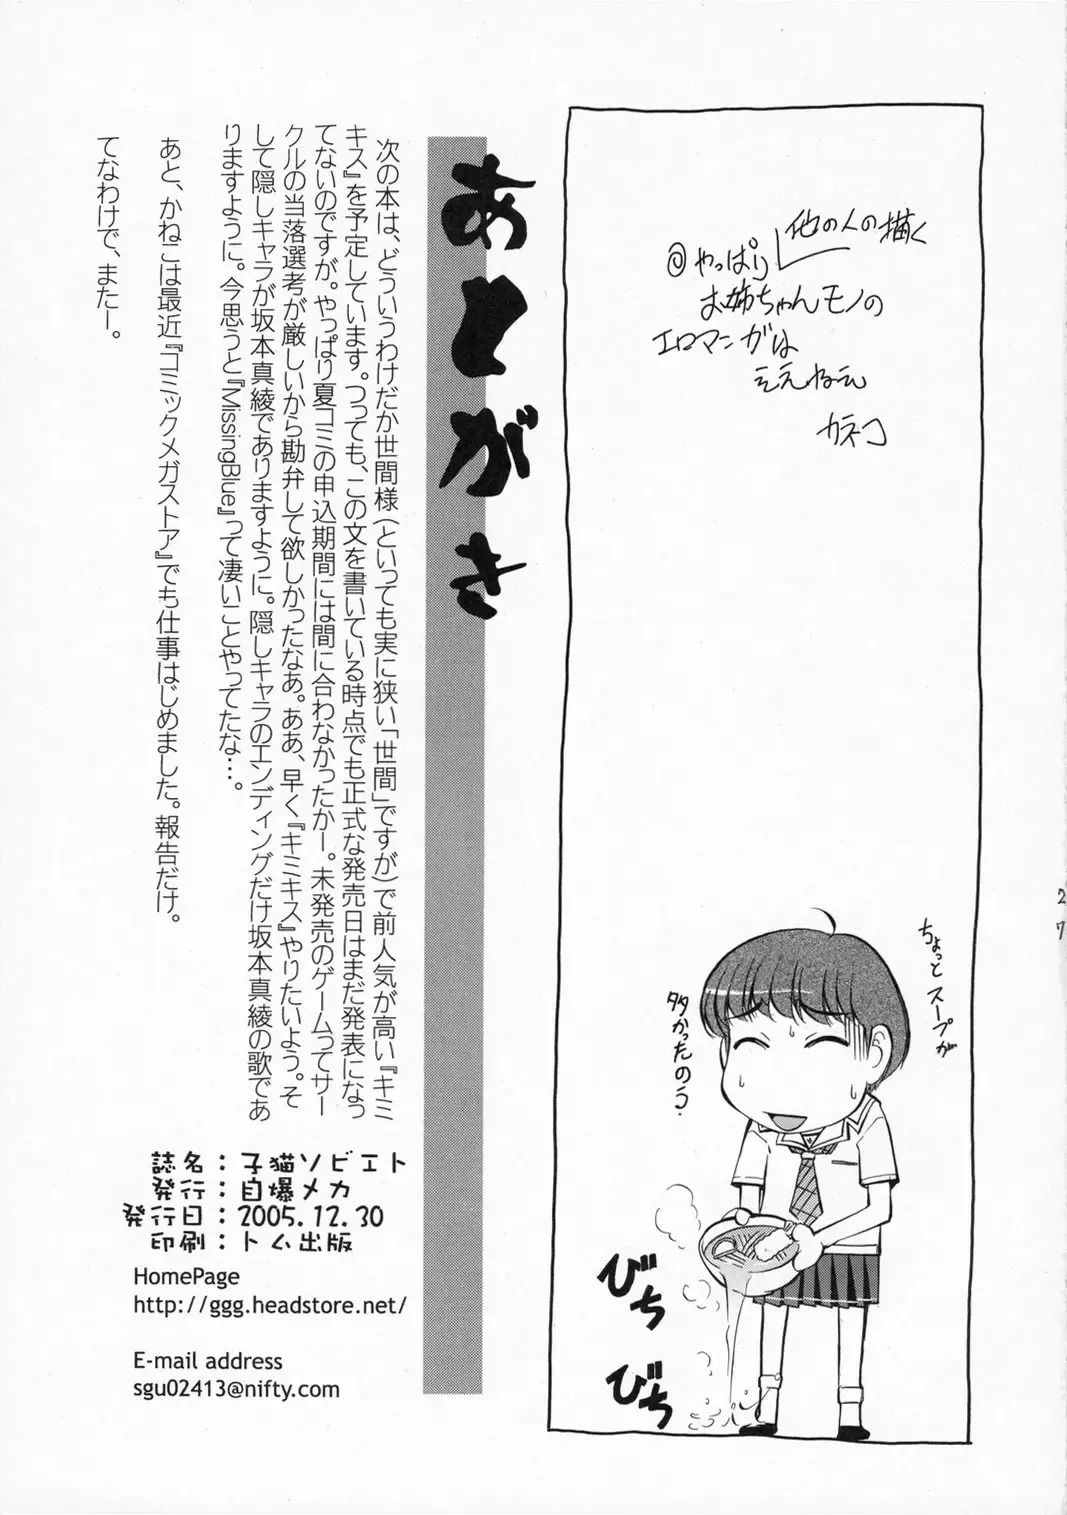 他の人の描く
◎やっぱり
お姉ちゃんモノの
エロマンガは
ええねえ
カネコ
ちょっとスープが
多かったのう.
びち
びち
27
あとがき
次の本は、どういうわけだか世間様(といっても実に狭い「世間」ですが)で前人気が高い『キミ
キス』を予定しています。つっても、この文を書いている時点でも正式な発売日はまだ発表になっ
てないのですが。やっぱり夏コミの申込期間には間に合わなかったかー。未発売のゲームってサー
クルの当落選考が厳しいから勘弁して欲しかったなあ。ああ、早く『キミキス』やりたいよう。そ
して隠しキャラが坂本真綾でありますように。隠しキャラのエンディングだけ坂本真綾の歌であ
りますように。今思うと『MissingBlue』って凄いことやってたな…。
あと、かねこは最近『コミックメガストア』でも仕事はじめました。報告だけ。
てなわけで、またー。
誌名：子猫ソビエト
発行：自爆メカ
発行日：2005.12.30
印刷：トム出版
HomePage
http://ggg.headstore.net/
E-mail address
sgu02413@nifty.com